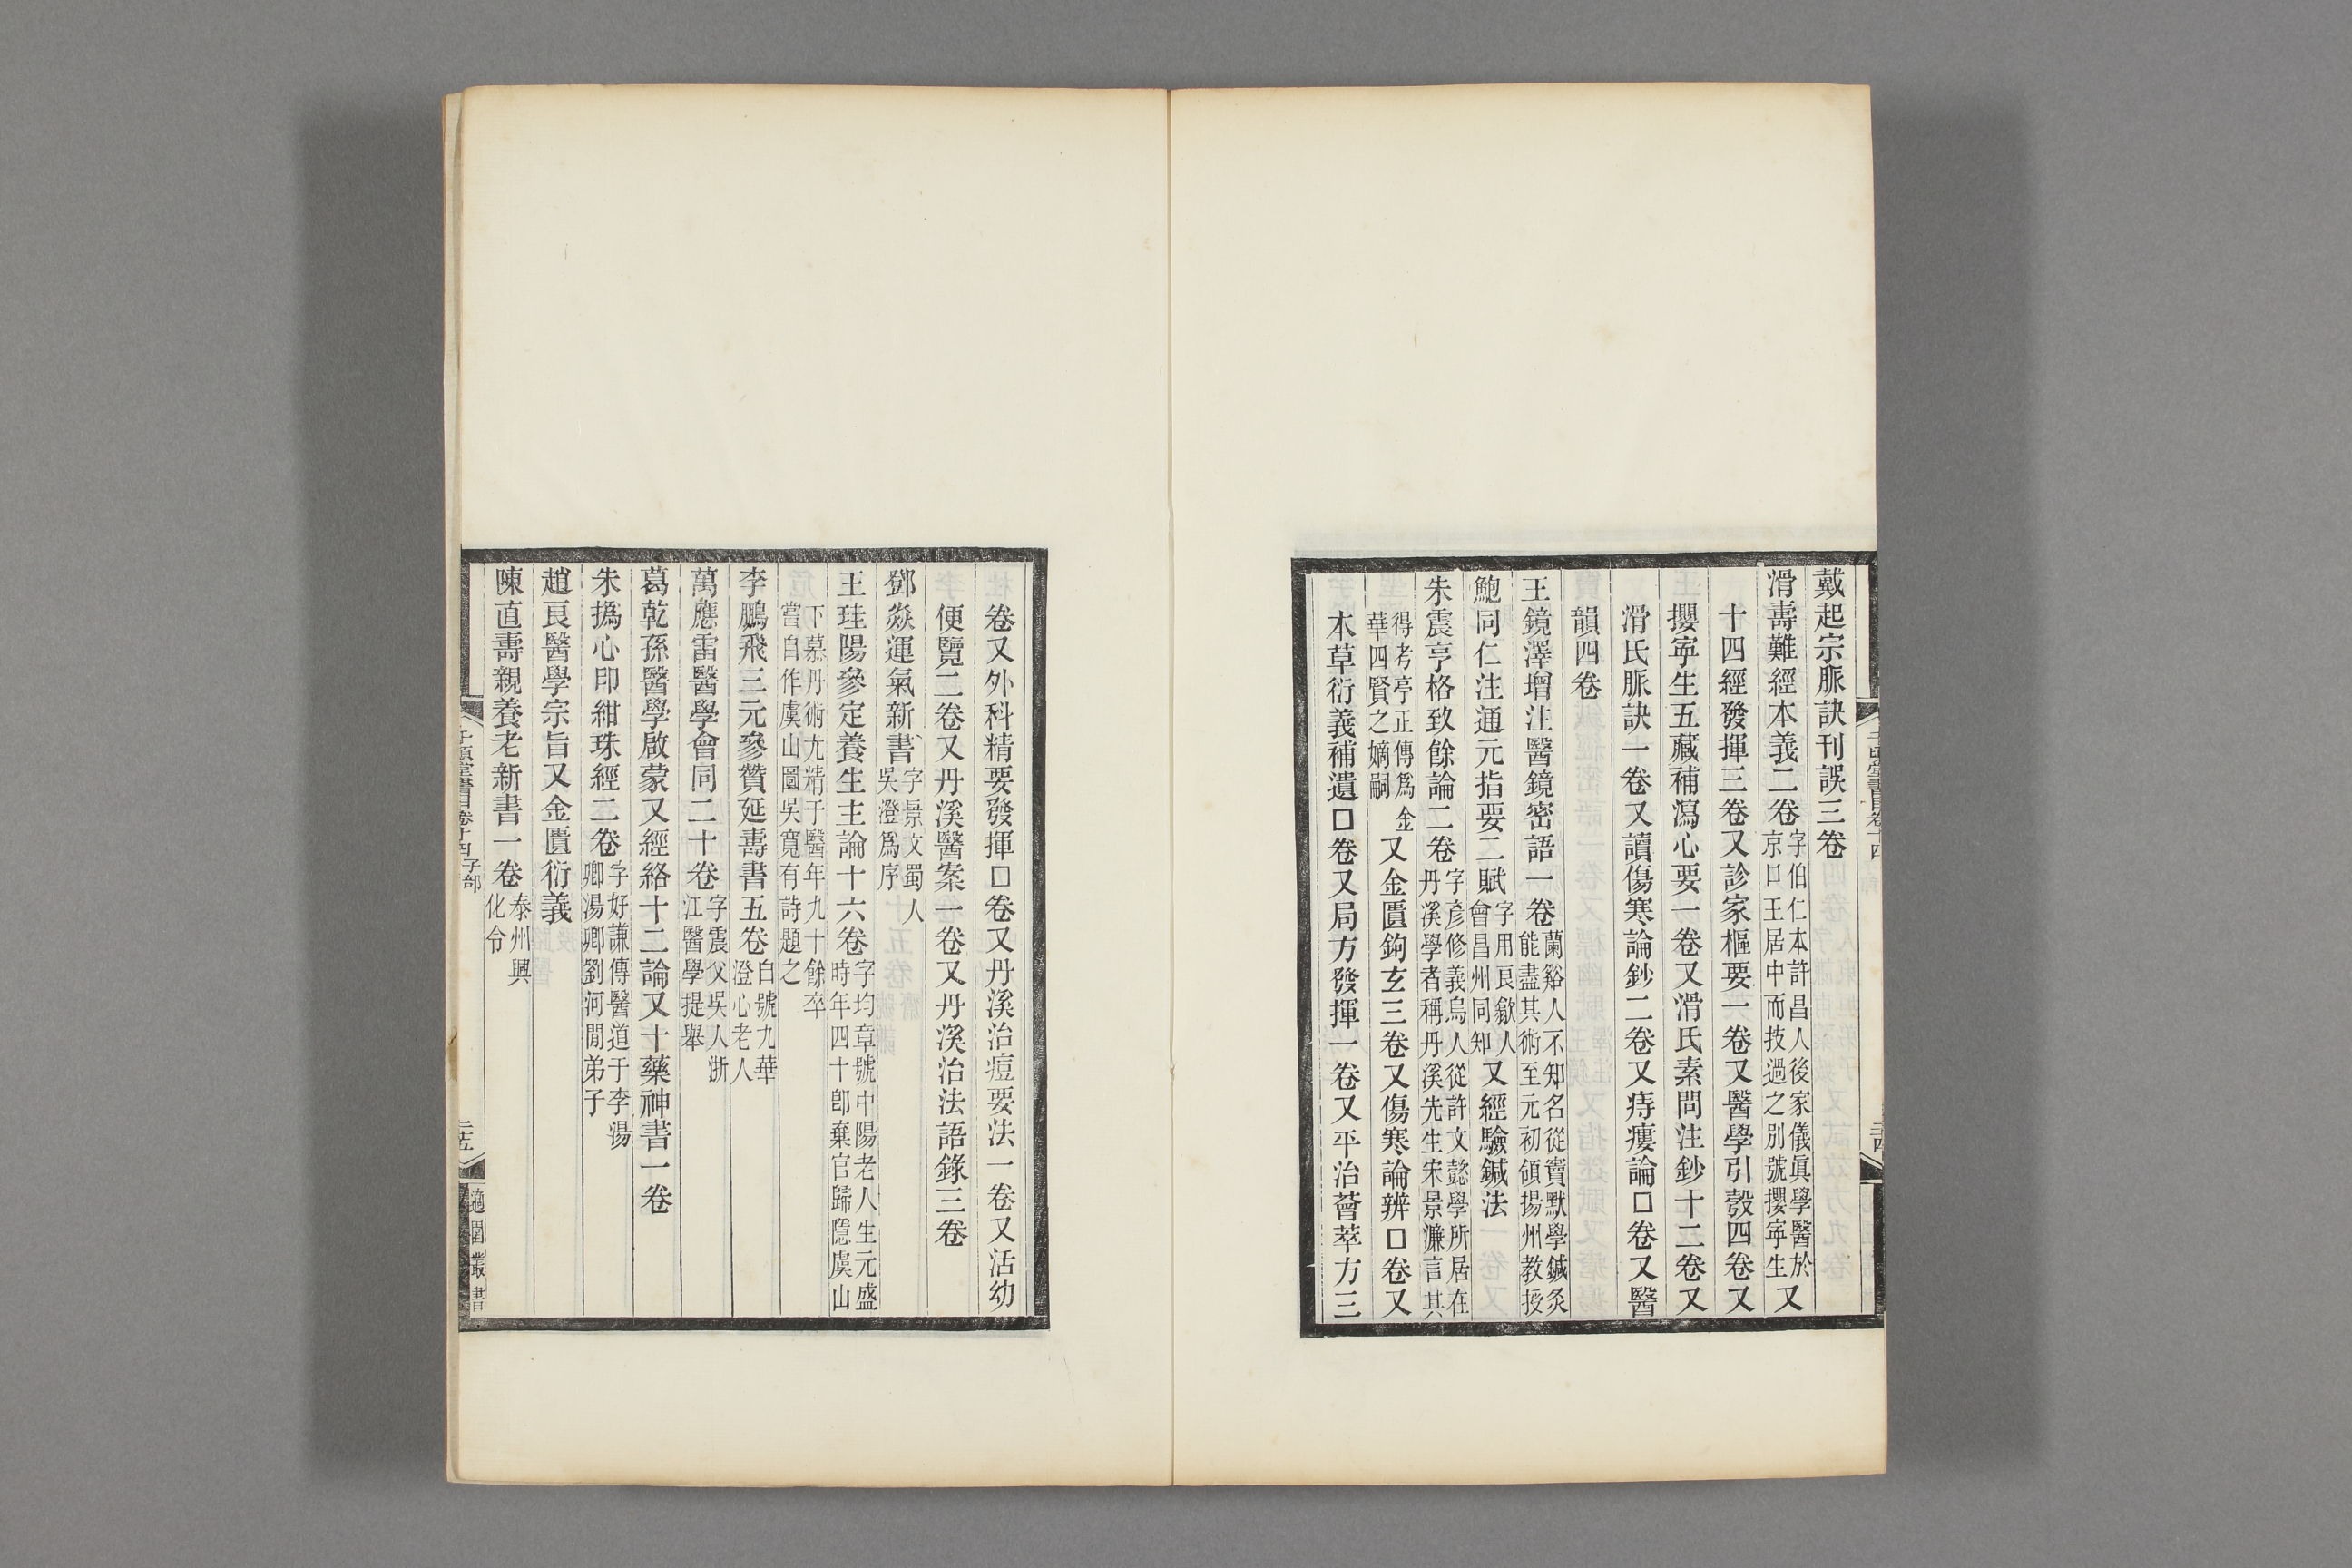 戴起宗脈訣刊誤三卷
滑壽難經本義二卷字伯仁本許昌人後家儀眞學醫於京口王居中而技過之別號攖寧生又
十四經發揮三卷又診家樞要一卷又醫學引彀四卷又
攖寧生五藏補瀉心要一卷又滑氏素問注鈔十二卷又
滑氏脈訣一卷又讀傷寒論鈔二卷又痔瘻論口卷又醫
韻四卷
王鏡澤增注醫鏡密語一卷蘭谿人不知名從竇默學鍼灸能盡其術至元初領揚州教授
鮑同仁注通元指要二賦字用良歙人會昌州同知又經驗鍼法
朱震亨格致餘論二卷字彥修義烏人從許文懿學所居在丹溪學者稱丹溪先生宋景濂言其
得考亭正傳爲金華四賢之嫡嗣又金匱鉤玄三卷又傷寒論辨口卷又
本草衍義補遺口卷又局方發揮一卷又平治薈萃方三
卷又外科精要發揮口卷又丹溪治痘要法一卷又活幼
便覽二卷又丹溪醫案一卷又丹溪治法語錄三卷
鄧焱運氣新書字景文蜀人吳澄爲序
王珪陽參定養生主論十六卷字均章號中陽老人生元盛時年四十卽棄官歸隱虞山
下慕丹術尤精于醫年九十餘卒嘗自作虞山圖吳寬有詩題之
李鵬飛三元參贊延壽書五卷自號九華澄心老人
萬應雷醫學會同二十卷字震父吳人浙江醫學提舉
葛乾孫醫學啟蒙又經絡十二論又十藥神書一卷
朱撝心印紺珠經二卷字好謙傳醫道于李湯卿湯卿劉河間弟子
趙良醫學宗旨又金匱衍義
陳直壽親養老新書一卷泰州興化令
千頃堂書目卷十四子部
二十五
適園叢書